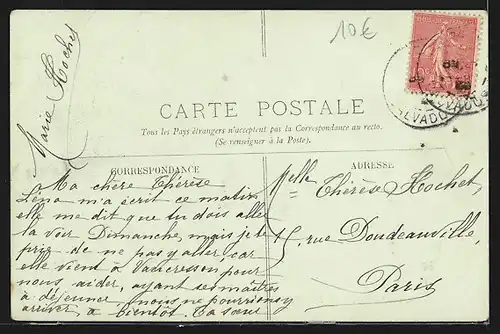 10€
Marie Hochet
CARTE POSTALE
Tous les Pays étrangers n'acceptent pas la Correspondance au recto.
(Se renseigner à la Poste).
CORRESPONDANCE
ADRESSE
Ma chere Thérèse
Léna m'a écrit ce matin
elle me dit que tu dois aller
la voir Dimanche, mais je te
prie de ne pas y aller, car
elle vient à Vaucresson pour
nous aider, ayant ses maîtres
à déjeuner nous ne pourrions y
arriver, à bientôt. Ta sœur
Melle Thérèse Hochet,
5, rue Doudeauville,
Paris
CALVADOS